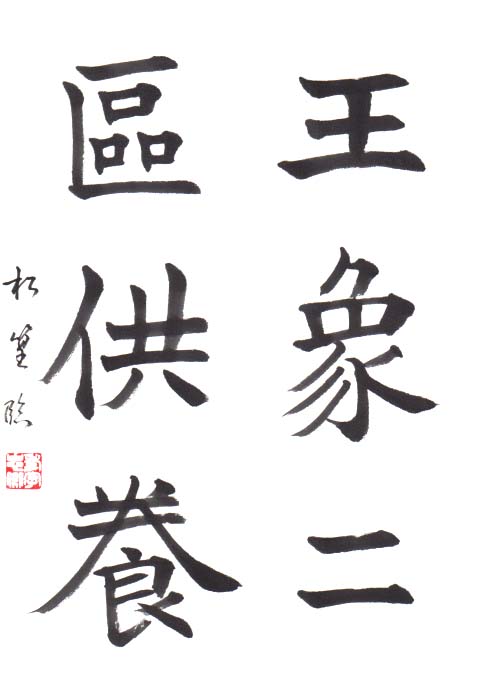 王象二
區供養
松篁臨